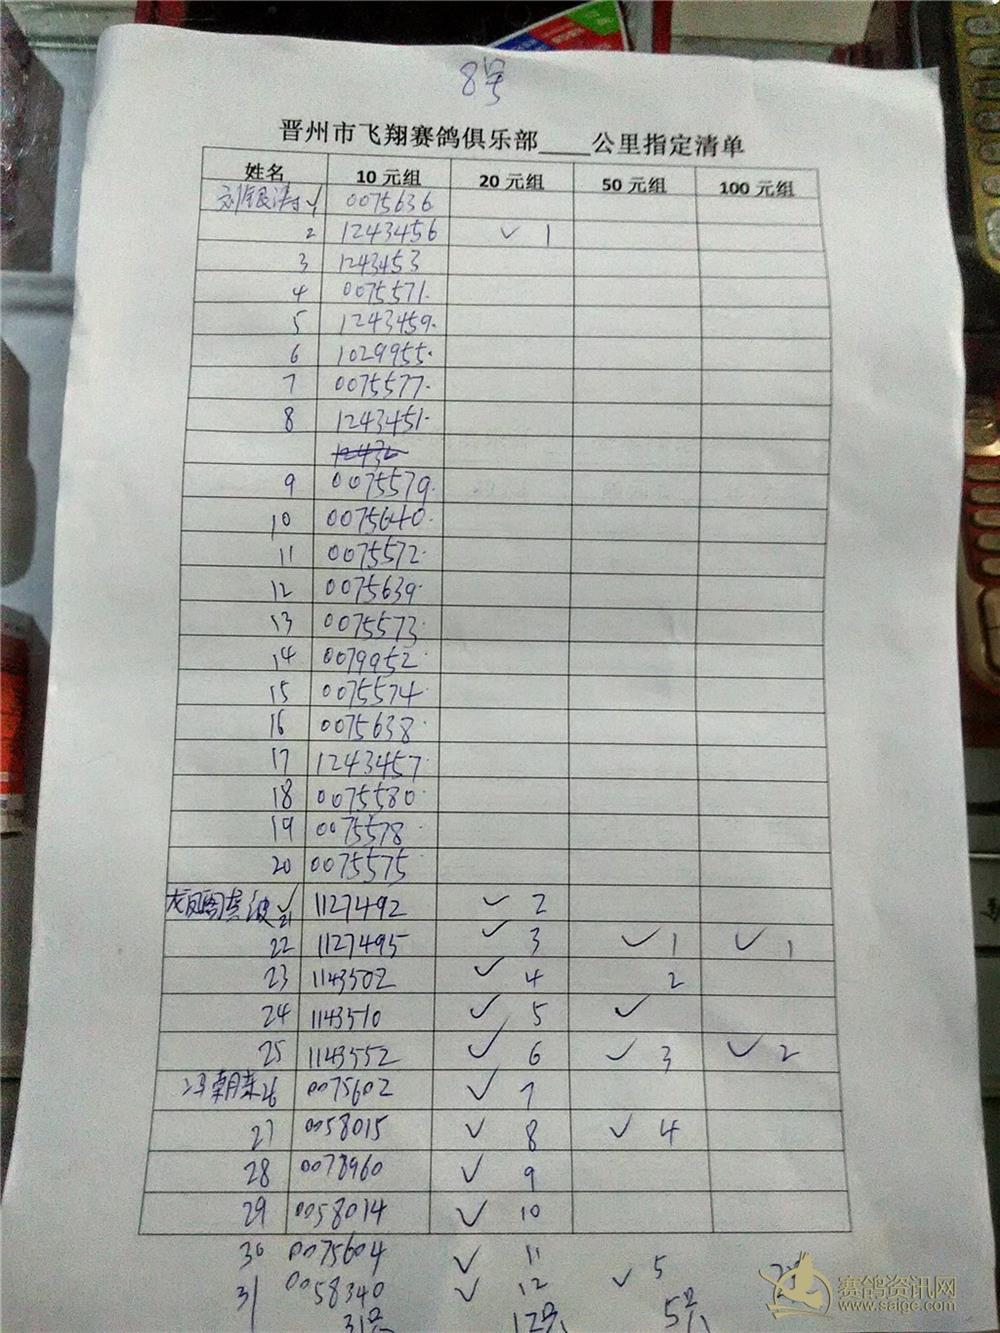 8号
晋州市飞翔赛鸽俱乐部____公里指定清单
姓名 10 元组 20 元组 50 元组 100 元组
1 0075636
2 1243456 ✓ 1
3 1243453
4 0075571.
5 1243459.
6 1029955.
7 0075577.
8 1243451.
9 0075579.
10 0075640.
11 0075572.
12 0075639.
13 0075573.
14 0079952.
15 0075574.
16 0075638.
17 1243457.
18 0075580.
19 0075578.
20 0075575
21 1127492 ✓ 2
22 1127495 ✓ 3 ✓ 1 ✓ 1
23 1143502 ✓ 4 2
24 1143510 ✓ 5 ✓
25 1143552 ✓ 6 ✓ 3 ✓ 2
冯朝来 26 0075602 ✓ 7
27 0058015 ✓ 8 ✓ 4
28 0078960 ✓ 9
29 0058014 ✓ 10
30 0075604 ✓ 11
31 0058340 ✓ 12 ✓ 5
31只 12只 5只
赛鸽资讯网
www.saige.com